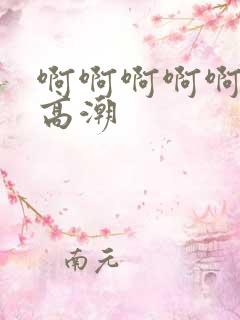 啊啊啊啊啊
高潮
南元